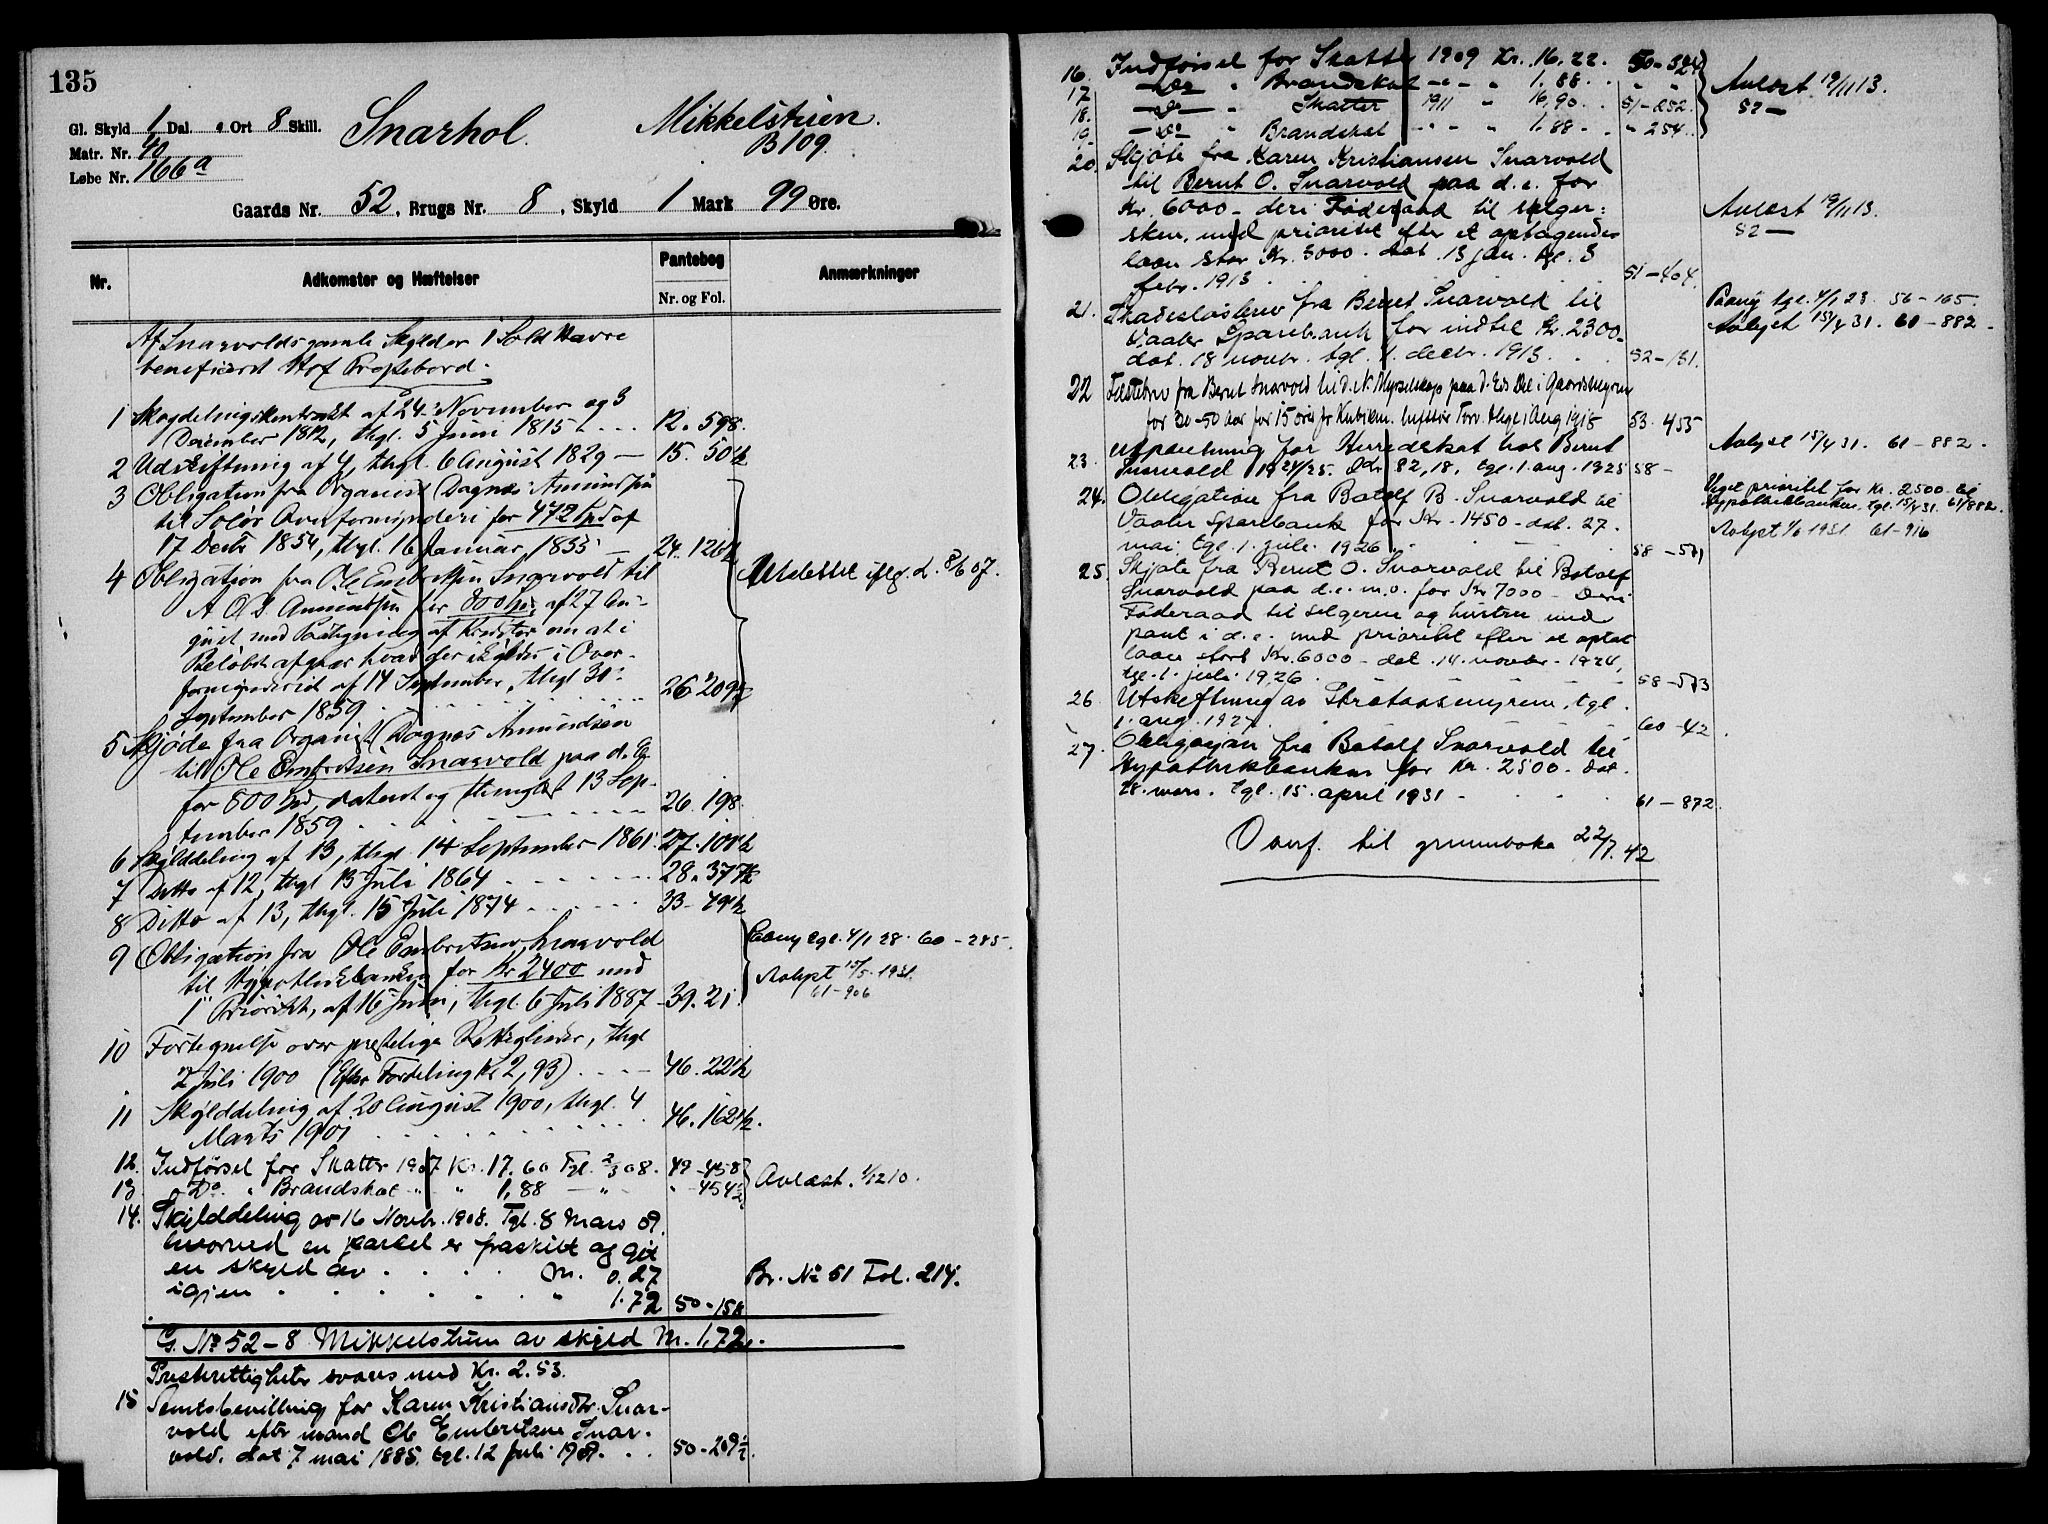 135
Gl. Skyld 1 Dal. " Ort 8 Skill.
Snarhol.
Mikkelstuen.
B109.
Matr. Nr. 40
Løbe Nr. 166a
Gaards Nr. 52, Brugs Nr. 8, Skyld 1 Mark 99 Øre.
Nr.
Adkomster og Hæftelser
Pantebog
Nr. og Fol.
Anmærkninger
Af Snarvolds gamle Skylder 1 Sold Havre
beneficeret Hof Præstebord.
1 Skogdelingskontrakt af 24. November og 3
December 1812, thgl. 5 Juni 1815 12. 598.
2 Udskiftning af 4, thgl. 6 August 1829 — 15. 50b
3 Obligation fra Organist Dagnæs Amundsen
til Solør Overformynderi for 472 Spd af
17 Decbr 1854, thgl. 16 Januar 1855 — 24. 126b
4 Obligation fra Ole Embretsen Snarvold til
A O D. Amundsen for 800 Spd, af 27 Au-
gust med Paategning af Kreditor om at i
Beløbet afgaar hvad der skyldes i Over-
formynderiet af 14 September, thgl 30.
September 1859 26. 209b
Udslettet iflg. d. 8/6 07.
5 Skjøde fra Organist Dagnæs Amundsen
til Ole Embretsen Snarvold paa d. E.
for 800 Spd, dateret og thinglæst 13 Sep-
tember 1859 26. 198.
6 Skylddeling af 13, thgl. 14 September 1861. 27. 101b
7 Ditto af 12, thgl 13 Juli 1864 28. 377b
8 Ditto af 13, thgl. 15 Juli 1874 33. 49b
9 Obligation fra Ole Embretsen Snarvold
til Hypothekbanken for Kr 2400 med
1ste Prioritet, af 16 Juni, thgl. 6 Juli 1887 39. 21.
Paany tgl. 4/1 28. 60 - 285.
Avlyst 15/5. 1931.
61-906
10 Fortegnelse over prestelige Rettigheder, thgl
2 Juli 1900 (Efter Fordeling Kr 2,93) 46. 22b
11 Skylddeling af 20 August 1900, thgl. 4
Marts 1901 46. 162b.
12. Indførsel for Skatter 1907 Kr. 17.60 Tgl. 2/3 08. 49 - 458
13. Do. " Brandskat " " 1,88 — " " 454½
Avlæst. 1/12 10.
14. Skylddeling av 16 Novbr. 1908. Tgl. 8 Mars 09.
hvorved en parcel er fraskilt og git
en skyld av M. 0.27
igjen " 1.72 50 - 15b
Br. No 61 Fol. 214.
G. No 52-8 Mikkelstuen av skyld M. 1,72.
Presterettigheter svares med Kr. 2.53.
15 Amtsbevilling for Karen Kristiansdtr. Snar-
vold efter mand Ole Embretsen Snar-
vold. dat 7 mai 1885. tgl. 12 Juli 1909. 50 - 209½.
16. Indførsel for Skatter 1909 Kr. 16.22. 50 - 324
17 — Do " Brandskat — " — " 1.88. " "
18. — Do — " Skatter 1911 " 16,90. 51 - 252.
19. — Do " Brandskat " " " 1.88. " 254.
Avlæst 19/11 13.
52 —
20. Skjøte fra Karen Kristiansen Snarvold
til Bernt O. Snarvold paa d. e. for
Kr. 6000 - deri Føderaad til selger-
sken, med prioritet efter et optagendes
laan stor Kr. 3000. dat. 13 jan. tgl. 3
febr. 1913 51 - 404.
Avlæst 19/11 13.
52 —
21. Skadesløsbrev fra Bernt Snarvold til
Vaaler Sparebank for indtil Kr. 2300.
dat. 18 novbr. tgl. 1. decbr. 1913. 52 - 131.
Paany tgl. 4/1 23. 56 - 165.
Avlyst 15/4 31. 61 - 882.
22 Festebrev fra Bernt Snarvold til d. N. Myrselskap paa d. Eds Del i Gaardsmyren
for 30-50 Aar for 15 øre pr Kubikm. lufttør Torv. thgl 1 Aug 1918 53. 455
23. Utpantning for Herredskat hos Bernt
Snarvold 1924/25. Kr. 82,18. tgl. 1. aug. 1925 58 -
Avlyst 15/4 31. 61 - 882.
24. Obligation fra Botolf B. Snarvold til
Vaaler Sparebank for Kr. 1450 - dat. 27.
mai, tgl. 1. juli. 1926 58 - 571
Veget prioritet for Kr. 2500 - til
Hypothekbanken. tgl. 15/4 31. 61/882.
Avlyst 1/6 1931 61-916
25. Skjøte fra Bernt O. Snarvold til Botolf
Snarvold paa d. e. m. v. for Kr 7000 - Deri
Føderaad til selgeren og hustru med
pant i d. e. med prioritet efter et optat
laan stort Kr. 6000 - dat. 14. novbr. 1924,
tgl. 1. juli 1926. 58 - 573
26. Utskiftning av Strataasmyrene, tgl.
1. aug. 1927. 60 - 42.
27. Obligasjon fra Botolf Snarvold til
Hypothekbanken for Kr. 2500 - dat.
18. mars. tgl. 15. april 1931 - 61 - 872.
Overf. til grunnboka 22/7. 42